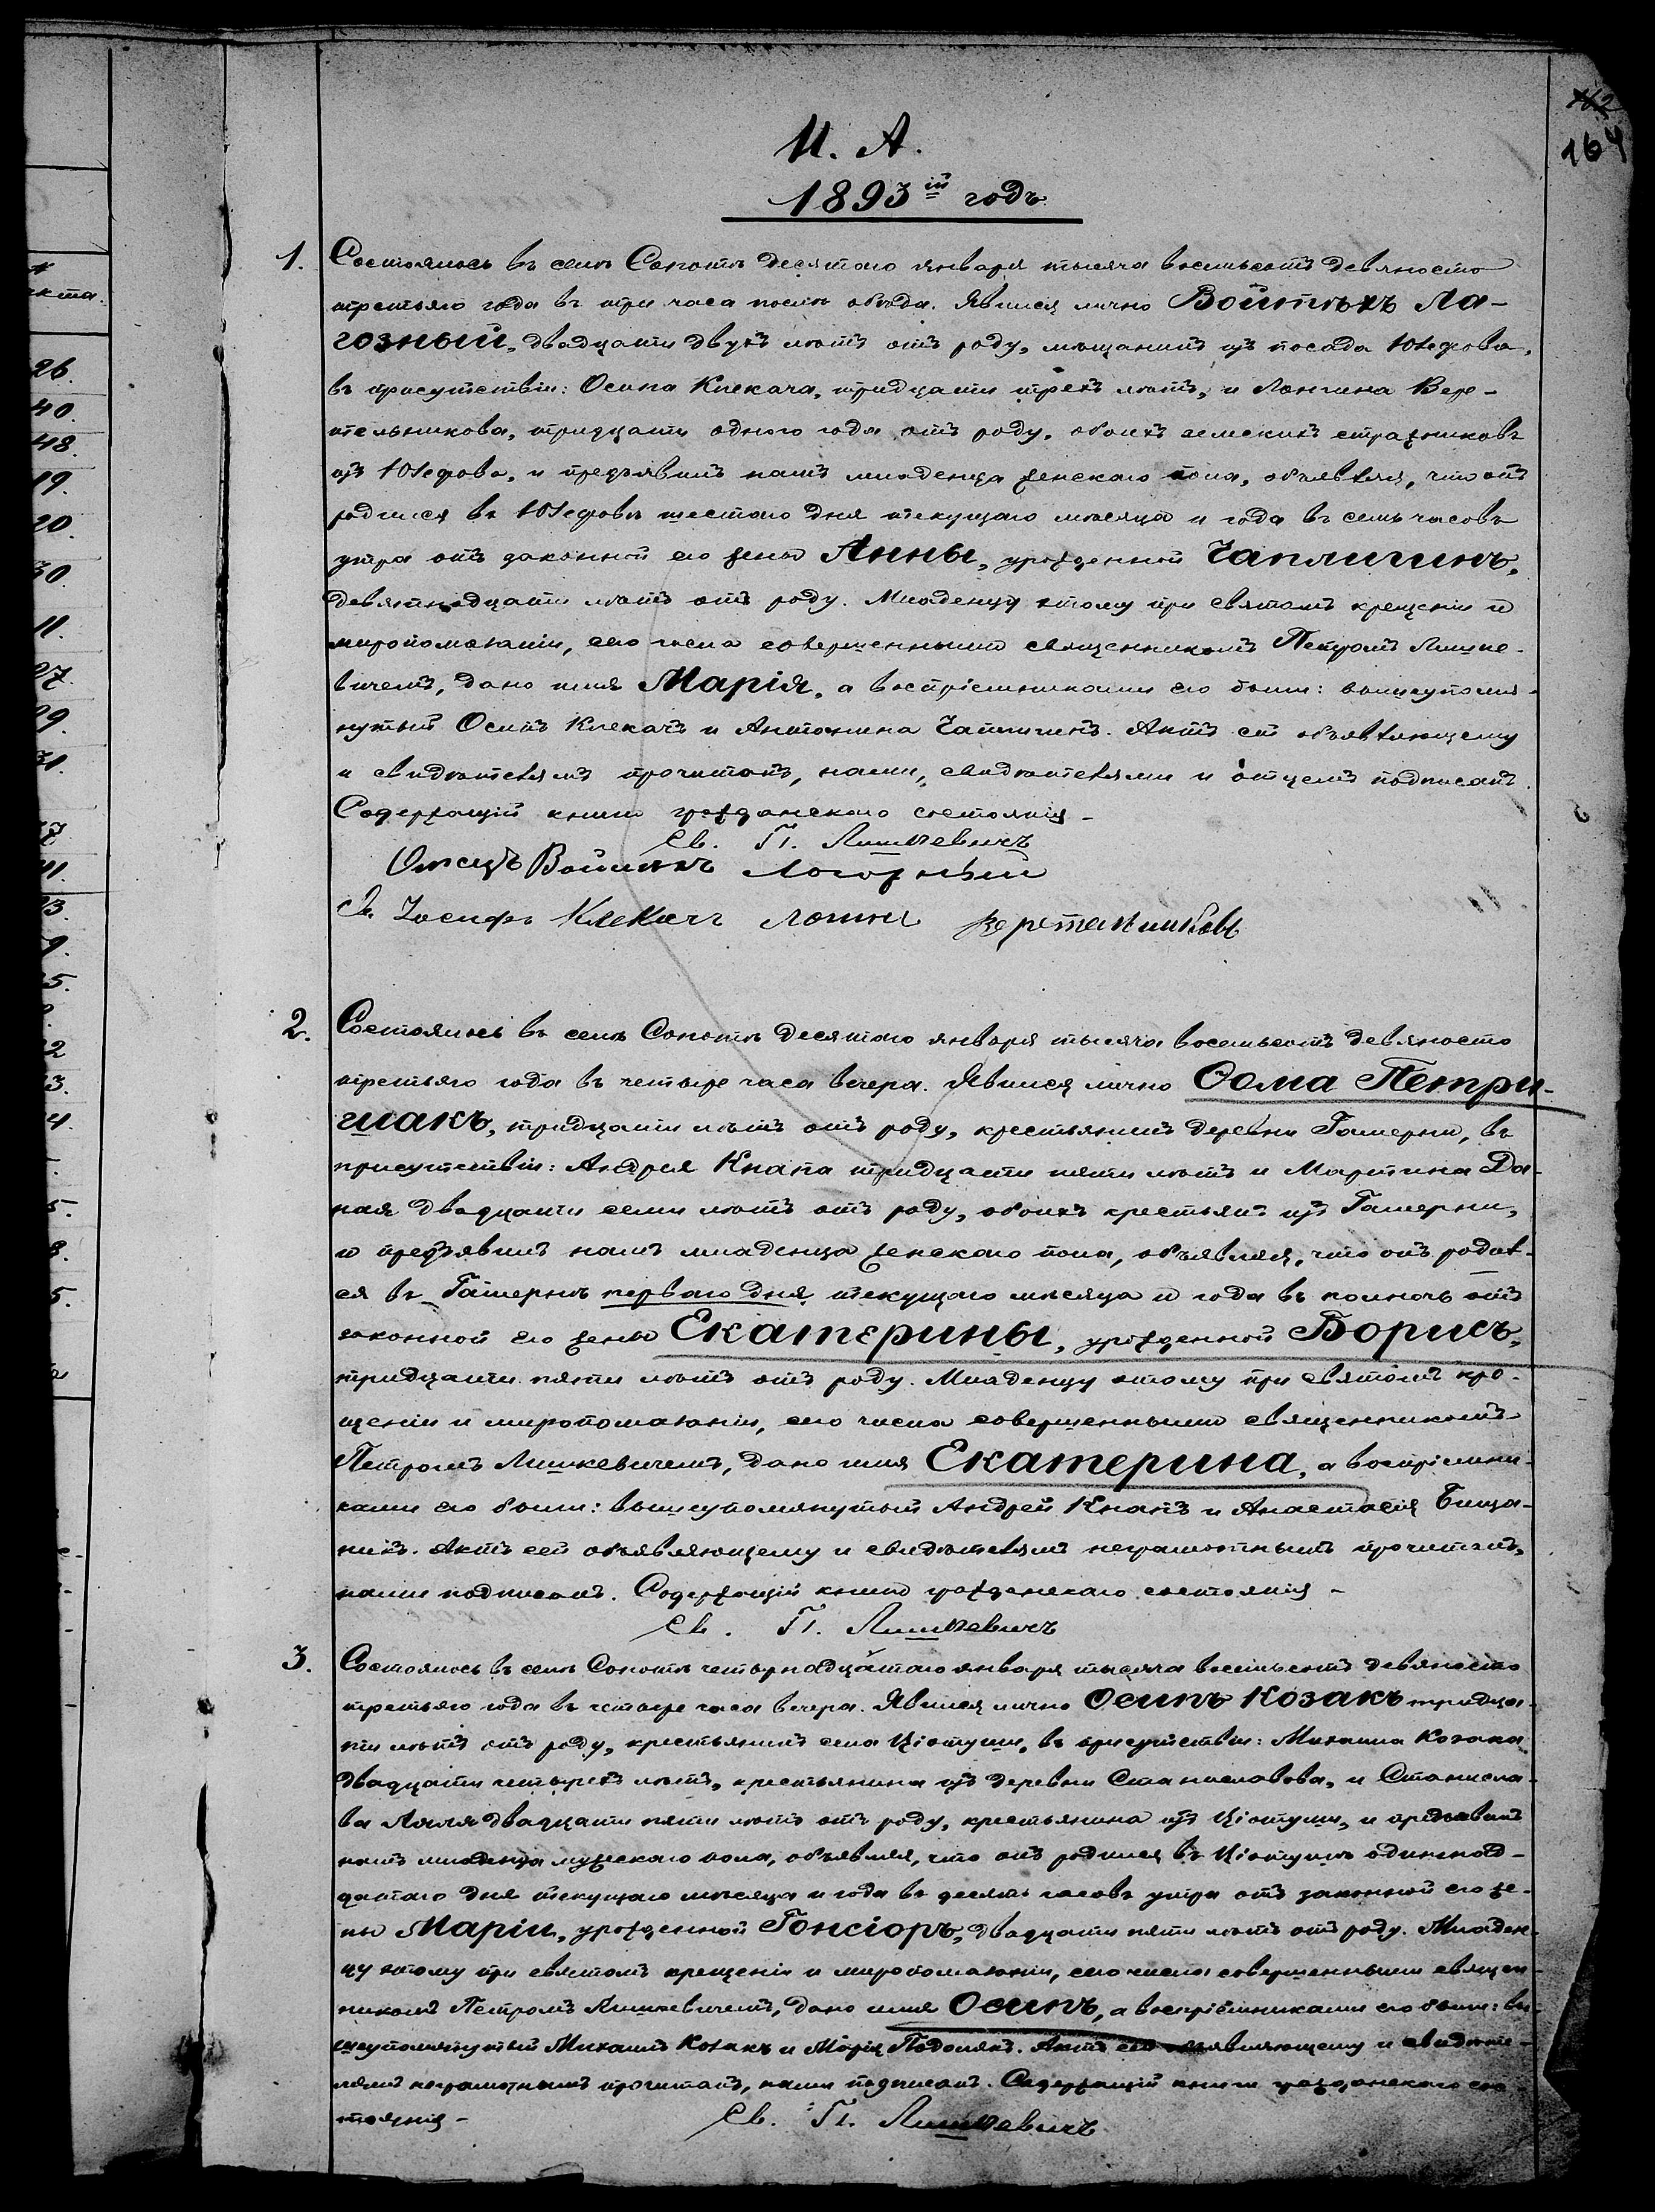 162
164
И. А.
1893ій годъ
1. Состоялось въ селѣ Сопотѣ десятаго января тысяча восемьсотъ девяносто
третьяго года въ три часа послѣ обѣда. Явился лично Войтѣхъ Ла-
гозный, двадцати двухъ лѣтъ отъ роду, мѣщанинъ изъ посада Юзефова,
въ присутствіи: Осипа Клекача, тридцати трехъ лѣтъ, и Лонгина Вере-
тельникова, тридцати одного года отъ роду, обоихъ земскихъ стражниковъ
изъ Юзефова, и предъявилъ намъ младенца женскаго пола, объявляя, что онъ
родился въ Юзефовѣ шестаго дня текущаго мѣсяца и года въ семь часовъ
утра отъ законной его жены Анны, урожденной Чаплигинъ,
девятнадцати лѣтъ отъ роду. Младенцу этому при святомъ крещеніи и
миропомазаніи, сего числа совершенными священникомъ Петромъ Лишке-
вичемъ, дано имя Марія, а воспріемниками его были: вышеупомя-
нутый Осипъ Клекачъ и Антонина Чаплигинъ. Актъ сей объявляющему
и свидѣтелямъ прочитанъ, нами, свидѣтелями и отцемъ подписанъ.
Содержащій книги гражданскаго состоянія -
Св. П. Лишкевичъ
Отецъ Войтѣхъ Логозный
Св. Іосифъ Клекачъ Лонгин Веретельниковъ
2. Состоялось въ селѣ Сопотѣ десятаго января тысяча восемьсотъ девяносто
третьяго года въ четыре часа вечера. Явился лично Ѳома Петри-
шакъ, тридцати лѣтъ отъ роду, крестьянинъ деревни Гамерни, въ
присутствіи: Андрея Кнапа тридцати пяти лѣтъ и Мартина Да-
ная двадцати семи лѣтъ отъ роду, обоихъ крестьянъ изъ Гамерни,
и предъявилъ намъ младенца женскаго пола, объявляя, что онъ родил-
ся въ Гамернѣ перваго дня текущаго мѣсяца и года въ полночь отъ
законной его жены Екатерины, урожденной Борисъ,
тридцати пяти лѣтъ отъ роду. Младенцу этому при святомъ кре-
щеніи и миропомазаніи, сего числа совершенными священникомъ
Петромъ Лишкевичемъ, дано имя Екатерина, а воспріемни-
ками его были: вышеупомянутый Андрей Кнапъ и Анастасія Бища-
никъ. Актъ сей объявляющему и свидѣтелямъ неграмотнымъ прочитанъ,
нами подписанъ. Содержащій книги гражданскаго состоянія -
Св. П. Лишкевичъ
3. Состоялось въ селѣ Сопотѣ четырнадцатаго января тысяча восемьсотъ девяносто
третьяго года въ четыре часа вечера. Явился лично Осипъ Козакъ тридца-
ти лѣтъ отъ роду, крестьянинъ села Ціотуши, въ присутствіи: Михаила Козака
двадцати четырехъ лѣтъ, крестьянина изъ деревни Станиславова, и Станисла-
ва Ляля двадцати пяти лѣтъ отъ роду, крестьянина изъ Ціотуши, и предъявилъ
намъ младенца мужескаго пола, объявляя, что онъ родился въ Ціотушѣ одиннад-
цатаго дня текущаго мѣсяца и года въ десять часовъ утра отъ законной его же-
ны Маріи, урожденной Гонсіоръ, двадцати пяти лѣтъ отъ роду. Младен-
цу этому при святомъ крещеніи и миропомазаніи, сего числа совершенными священ-
никомъ Петромъ Лишкевичемъ, дано имя Осипъ, а воспріемниками его были: вы-
шеупомянутый Михаилъ Козакъ и Марія Подолякъ. Актъ сей объявляющему и свидѣте-
лямъ неграмотнымъ прочитанъ, нами подписанъ. Содержащій книги гражданскаго сос-
тоянія -
Св. П. Лишкевичъ